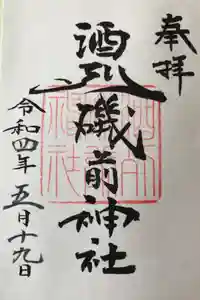 奉拝
酒列磯前神社
令和四年五月十九日